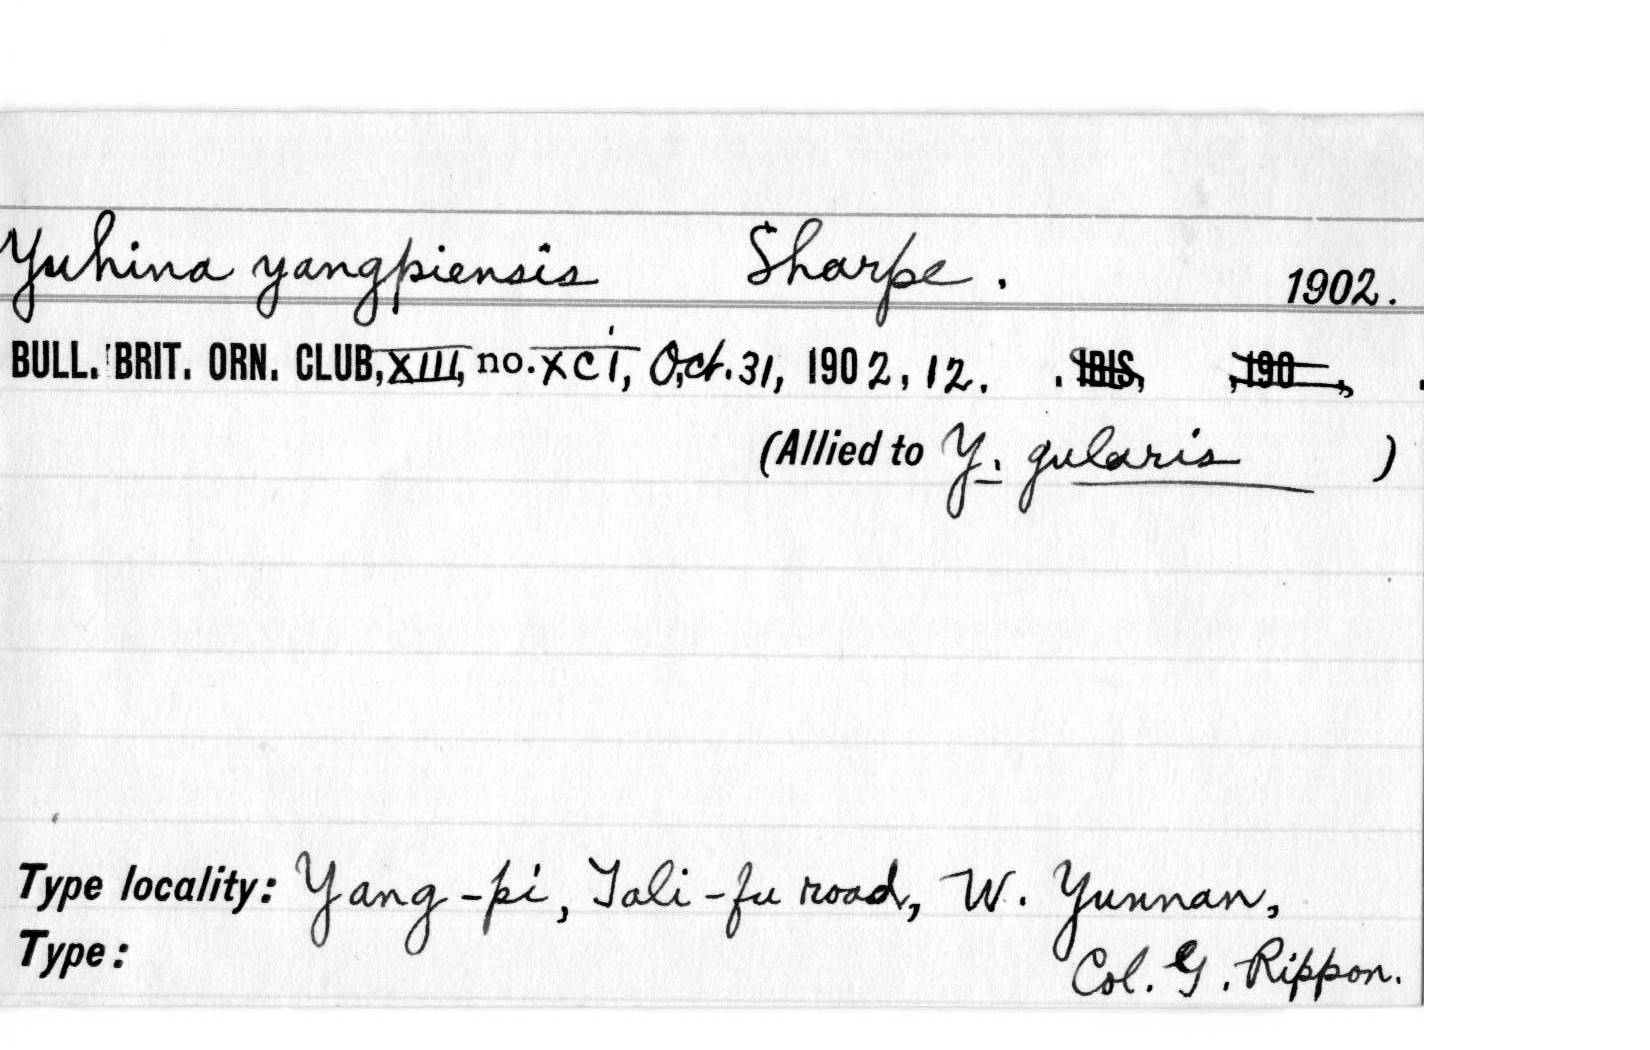 Yuhina yangpiensis Sharpe. 1902.
BULL. BRIT. ORN. CLUB, XIII, no. XCI, Oct. 31, 1902, 12. . IBIS, , 190 , .
(Allied to Y. gularis )
Type locality: Yang-pi, Tali-fu road, W. Yunnan,
Type: Col. G. Rippon.